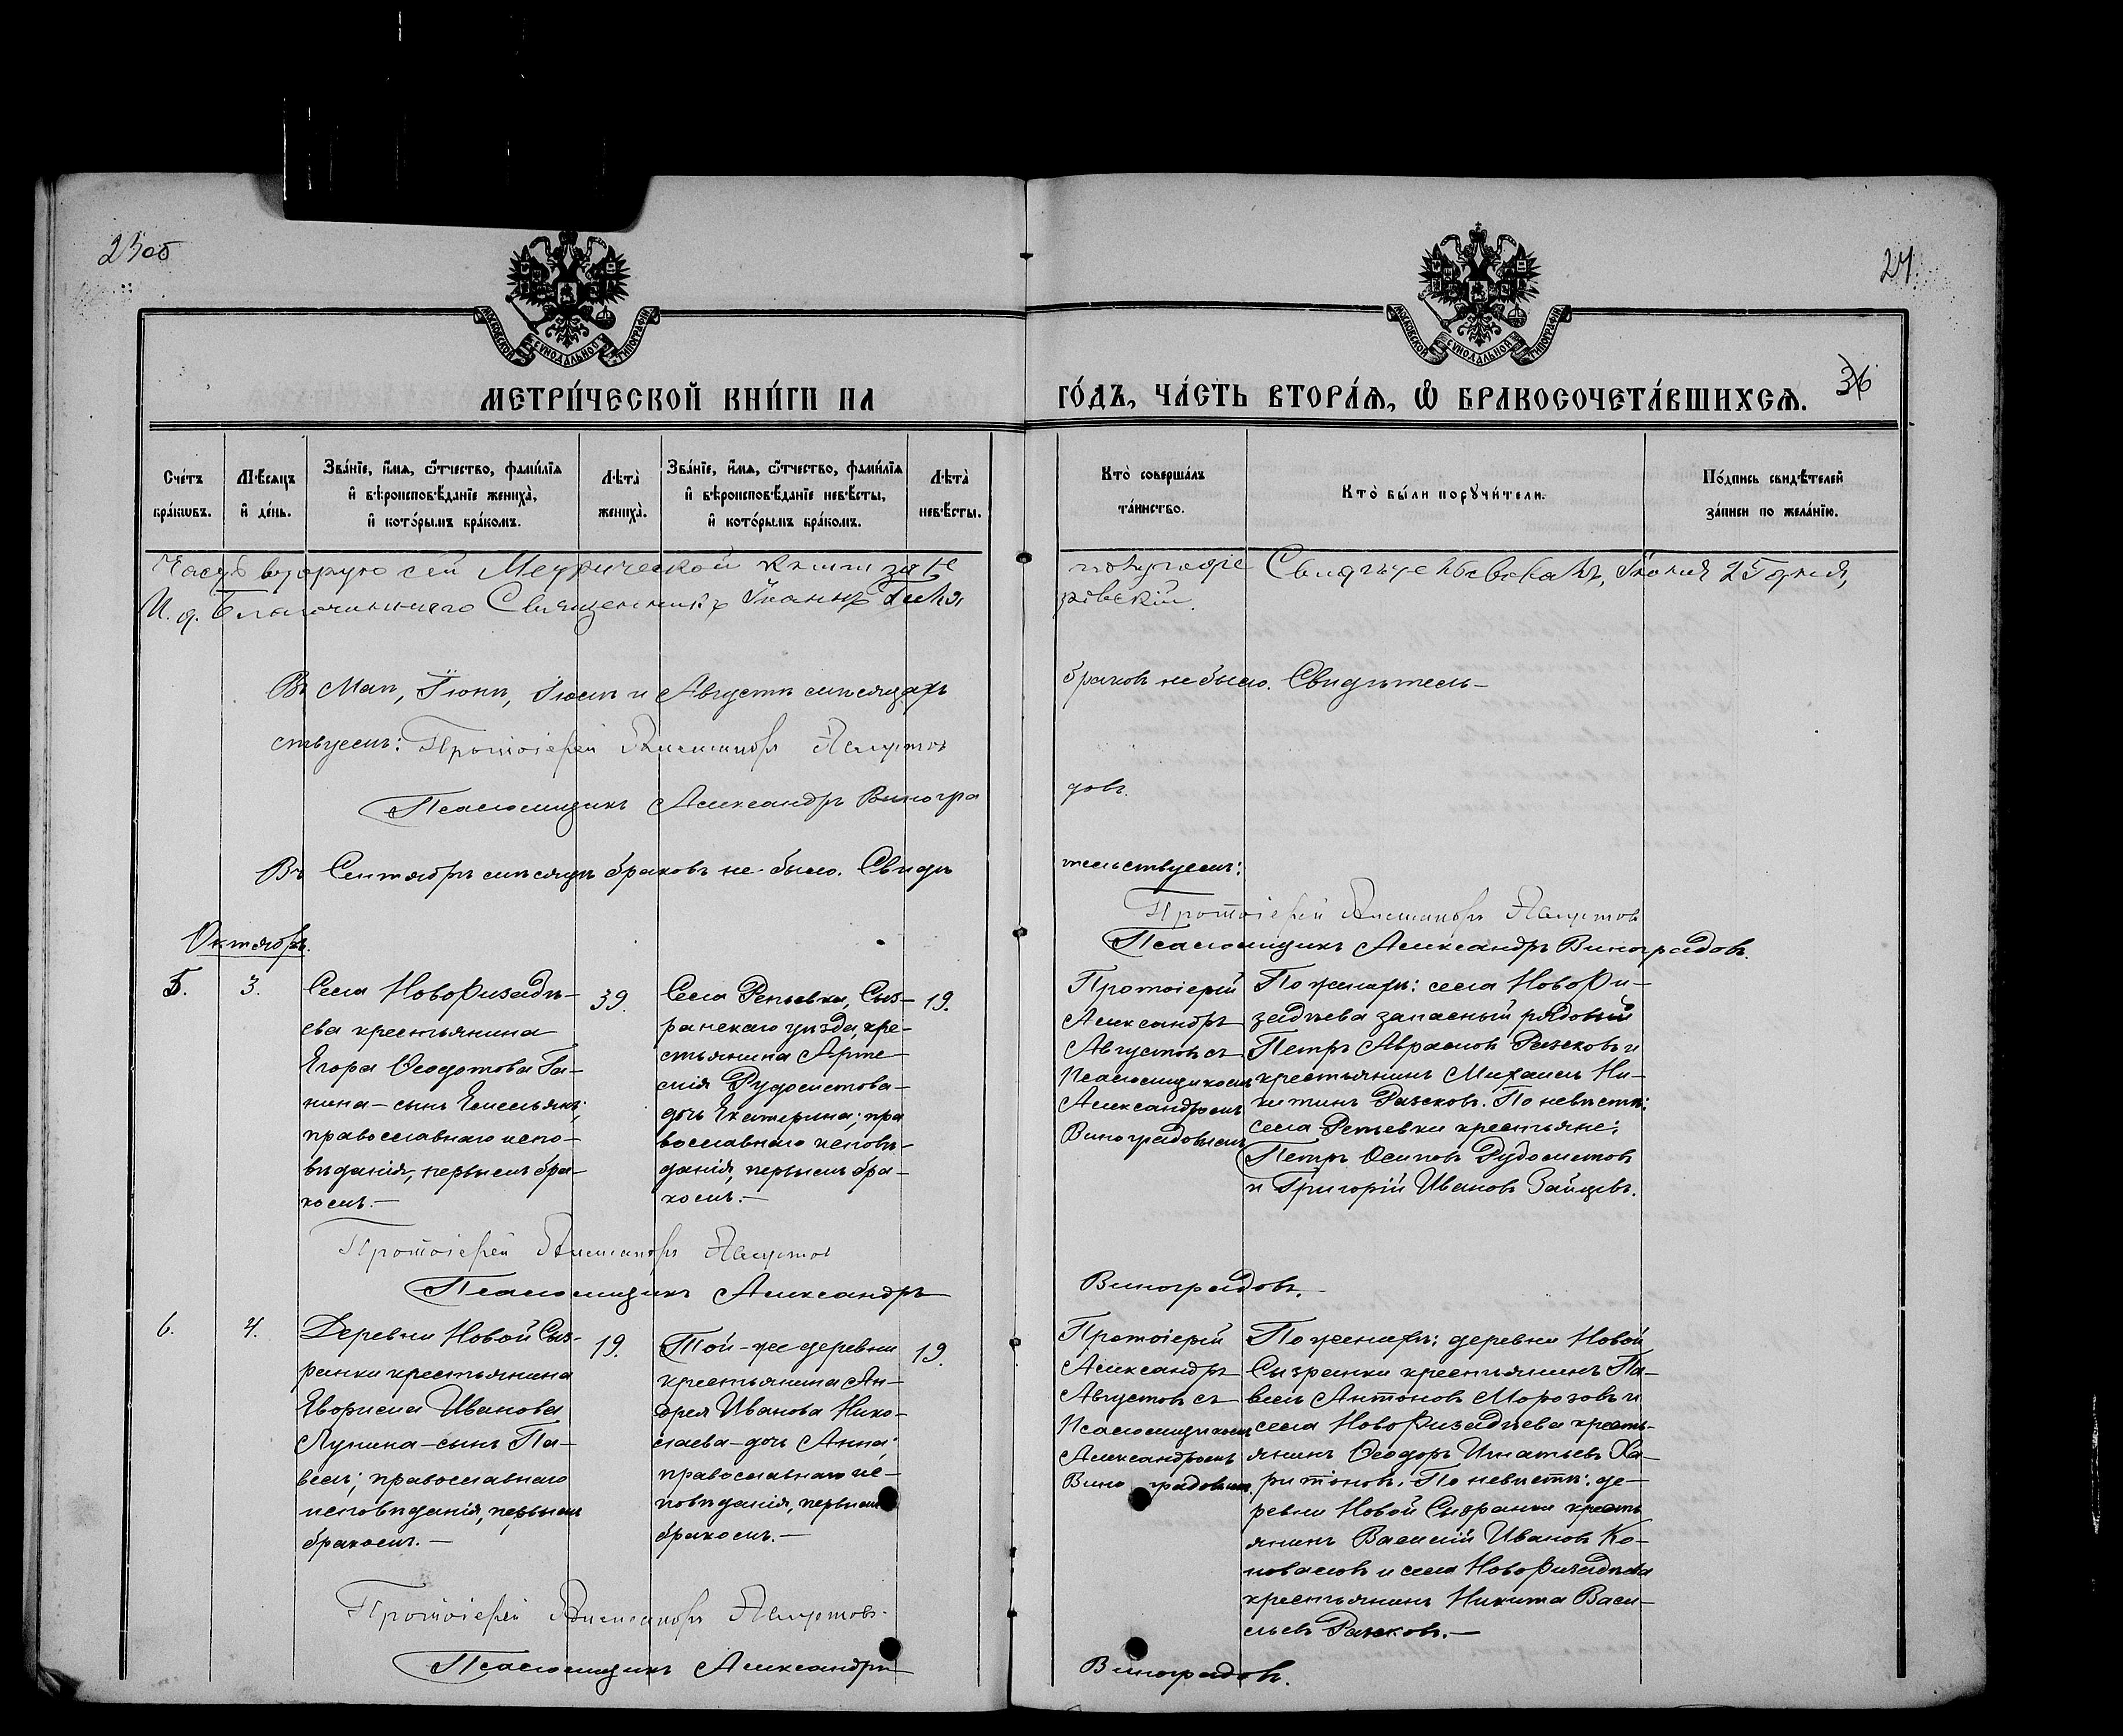 23об
24.
36
МОСКОВСКОЙ СѴНОДАЛЬНОЙ ТИПОГРАФІИ
МОСКОВСКОЙ СѴНОДАЛЬНОЙ ТИПОГРАФІИ
МЕТРИ́ЧЕСКОЙ КНИ́ГИ НА ГО́ДЪ, ЧА́СТЬ ВТОРА́Ѧ, Ѡ БРАКОСОЧЕТА́ВШИХСѦ.
Сче́тъ бра́кѡвъ.
Мѣ́сѧцъ и҆ де́нь.
Зва́нїе, и҆́мѧ, ѻ҆́тчество, фами́лїѧ и҆ вѣроисповѣ́данїе жениха̀, и҆ кото́рымъ бра́комъ.
Лѣта̀ жениха̀.
Зва́нїе, и҆́мѧ, ѻ҆́тчество, фами́лїѧ и҆ вѣроисповѣ́данїе невѣ́сты, и҆ кото́рымъ бра́комъ.
Лѣта̀ невѣ́сты.
Кто̀ соверша́лъ та́инство.
Кто̀ бы́ли порꙋчи́тели.
По́дпись свидѣ́телей за́писи по жела́нїю.
Часть вторую сей Метрической книги за 1-е полугодіе Свидѣтельствовалъ, Іюня 2
И. д. Благочиннаго Священникъ Іоаннъ
Въ Маѣ, Іюнѣ, Іюлѣ и Августѣ мѣсяцахъ браковъ не было. Свидѣтель-
ствуемъ: Протоіерей Александръ Августовъ
Псаломщикъ Александръ Виноградовъ.
Въ Сентябрѣ мѣсяцѣ браковъ не было. Свидѣтельствуемъ:
Протоіерей Александръ Августовъ
Псаломщикъ Александръ Виноградовъ.
Октябрь.
5.
3.
Села Новоризадѣ-
ева крестьянина
Егора Ѳеодотова Га-
нина – сынъ Емельянъ;
православнаго испо-
вѣданія, первымъ бра-
комъ. –
39.
Села Репьевки, Сыз-
ранскаго уѣзда, кре-
стьянина Арте-
мія Рудометова –
дочь Екатерина; пра
вославнаго исповѣ-
данія, первымъ бра-
комъ. –
19.
Протоіерей
Александръ
Августовъ съ
Псаломщикомъ
Александромъ
Виноградовымъ
По женихѣ: села Новори-
задѣева запасный рядовый
Петръ Авраамовъ Рачковъ и
крестьянинъ Михаилъ Ни-
китинъ Рачковъ. По невѣстѣ:
села Репьевки крестьяне:
Петръ Осиповъ Рудометовъ
и Григорій Ивановъ Зайцевъ.
Протоіерей Александръ Августовъ
Псаломщикъ Александръ Виноградовъ.
6.
4.
Деревни Новой Сыз-
ранки крестьянина
Іворима Иванова
Лунина – сынъ Па-
велъ; православнаго
исповѣданія, первымъ
бракомъ. –
19.
Той-же деревни
крестьянина Ан-
дрея Иванова Нико-
лаева – дочь Анна;
православнаго ис-
повѣданія, первымъ
бракомъ. –
19.
Протоіерей
Александръ
Августовъ съ
Псаломщикомъ
Александромъ
Виноградовымъ.
По женихѣ: деревни Новой
Сызранки крестьянинъ Па-
велъ Антоновъ Морозовъ и
села Новоризадѣева кресть-
янинъ Ѳеодоръ Игнатьевъ Ха-
ритоновъ. По невѣстѣ: де-
ревни Новой Сызранки кресть
янинъ Василій Ивановъ Ко-
новаловъ и села Новоризадѣева
крестьянинъ Никита Васи-
льевъ Рачковъ. –
Протоіерей Александръ Августовъ.
Псаломщикъ Александръ Виноградовъ.